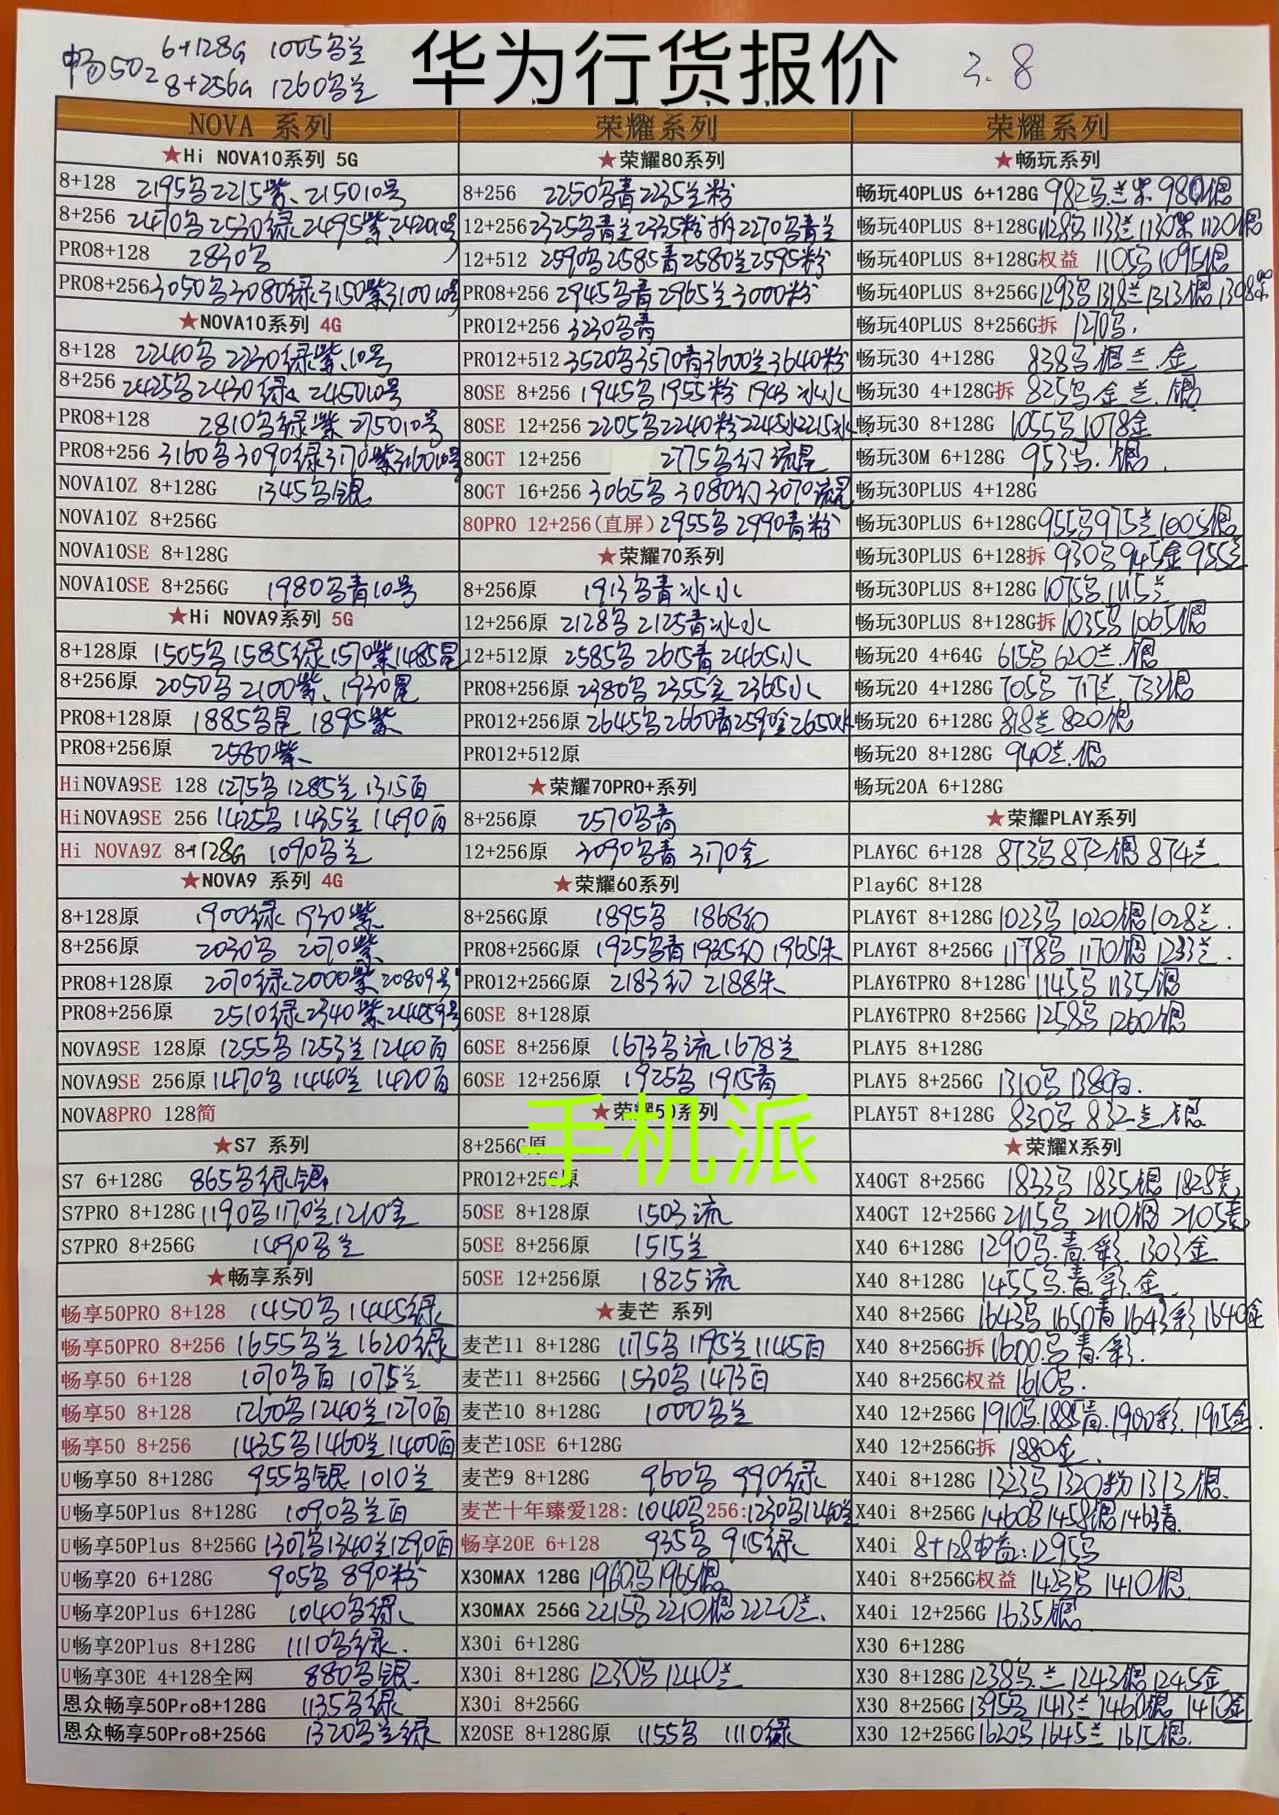 华为行货报价
3.8
畅50z 6+128G 1005乌兰
8+256G 1260乌兰
NOVA 系列
★Hi NOVA10系列 5G
8+128 2195乌2215紫、215010号
8+256 2470乌2530绿2495紫242010号
PRO8+128 2830乌
PRO8+256 3050乌3080绿3150紫310010号
★NOVA10系列 4G
8+128 2240乌2230绿紫.10号
8+256 2425乌2430绿 245010号
PRO8+128 2810乌绿紫 275010号
PRO8+256 3160乌3090绿3170紫316010号
NOVA10Z 8+128G 1345乌银
NOVA10Z 8+256G
NOVA10SE 8+128G
NOVA10SE 8+256G 1980乌青10号
★Hi NOVA9系列 5G
8+128原 1505乌1585绿1570紫1485昆
8+256原 2050乌2100紫、1930昆
PRO8+128原 1885乌昆 1895紫
PRO8+256原 2580紫
HiNOVA9SE 128 1275乌1285兰1315百
HiNOVA9SE 256 1425乌1435兰1490百
Hi NOVA9Z 8+128G 1090乌兰
★NOVA9 系列 4G
8+128原 1900绿 1930紫
8+256原 2030乌 2070紫
PRO8+128原 2070绿2000紫20809号
PRO8+256原 2510绿2340紫24459号
NOVA9SE 128原 1255乌1253兰1240百
NOVA9SE 256原 1470乌1440兰1420百
NOVA8PRO 128简
★S7 系列
S7 6+128G 865乌绿银
S7PRO 8+128G 1190乌1170兰1210金
S7PRO 8+256G 1490乌兰
★畅享系列
畅享50PRO 8+128 1450乌1445绿
畅享50PRO 8+256 1655乌兰 1620绿
畅享50 6+128 1070乌百 1075兰
畅享50 8+128 1260乌1240兰1270百
畅享50 8+256 1435乌1460兰1400百
U畅享50 8+128G 955乌银 1010兰
U畅享50Plus 8+128G 1090乌兰百
U畅享50Plus 8+256G 1307乌1340兰1290百
U畅享20 6+128G 905乌 890粉
U畅享20Plus 6+128G 1040乌绿
U畅享20Plus 8+128G 1110乌绿.
U畅享30E 4+128全网 880乌银
恩众畅享50Pro8+128G 1135乌绿
恩众畅享50Pro8+256G 1320乌兰绿
荣耀系列
★荣耀80系列
8+256 2250乌青2235兰粉
12+256 2325乌青兰2335粉拆2270乌青兰
12+512 2590乌2585青2580兰2595粉
PRO8+256 2945乌青2965兰3000粉
PRO12+256 3230乌青
PRO12+512 3520乌3570青3600兰3640粉
80SE 8+256 1945乌1955粉 1943冰水
80SE 12+256 2205乌2240粉2245冰2215水
80GT 12+256 2775乌幻 流星
80GT 16+256 3065乌3080幻3070流星
80PRO 12+256(直屏) 2955乌2990青粉
★荣耀70系列
8+256原 1913乌青冰水
12+256原 2128乌2125青冰水
12+512原 2585乌2615青2465水
PRO8+256原 2380乌2355金2365水
PRO12+256原 2645乌2660青2590金2650水
PRO12+512原
★荣耀70PRO+系列
8+256原 2570乌青
12+256原 3090乌青3170金
★荣耀60系列
8+256G原 1895乌 1868幻
PRO8+256G原 1925乌青1935幻1965朱
PRO12+256G原 2183幻 2188朱
60SE 8+128原
60SE 8+256原 1673乌流1678兰
60SE 12+256原 1925乌1915青
★荣耀50系列
手机派
8+256G原
PRO12+256原
50SE 8+128原 1503流
50SE 8+256原 1515兰
50SE 12+256原 1825流
★麦芒 系列
麦芒11 8+128G 1175乌1195兰1145百
麦芒11 8+256G 1530乌1473百
麦芒10 8+128G 1000乌兰
麦芒10SE 6+128G
麦芒9 8+128G 960乌 990绿
麦芒十年臻爱128: 1040乌256:1230乌1240兰
畅享20E 6+128 935乌 915绿
X30MAX 128G 1960乌1965银
X30MAX 256G 2215乌2210银2220兰
X30i 6+128G
X30i 8+128G 1230乌1240兰
X30i 8+256G
X20SE 8+128G原 1155乌 1110绿
荣耀系列
★畅玩系列
畅玩40PLUS 6+128G 982乌.兰紫 980银
畅玩40PLUS 8+128G 1128乌1133兰1130紫1120银
畅玩40PLUS 8+128G权益 1105乌1095银
畅玩40PLUS 8+256G 1293乌1318兰1313银1308紫
畅玩40PLUS 8+256G拆 1270乌.
畅玩30 4+128G 838乌银兰.金
畅玩30 4+128G拆 825乌金兰.银
畅玩30 8+128G 1055乌1078金
畅玩30M 6+128G 953乌.银
畅玩30PLUS 4+128G
畅玩30PLUS 6+128G 955乌975兰1005银
畅玩30PLUS 6+128拆 930乌945金955兰
畅玩30PLUS 8+128G 1075乌1115兰
畅玩30PLUS 8+128G拆 1035乌1065银
畅玩20 4+64G 615乌620兰.银
畅玩20 4+128G 705乌 717兰 733银
畅玩20 6+128G 818兰820银
畅玩20 8+128G 940兰.银
畅玩20A 6+128G
★荣耀PLAY系列
PLAY6C 6+128 873乌872银874兰
Play6C 8+128
PLAY6T 8+128G 1023乌1020银1028兰.
PLAY6T 8+256G 1178乌1170银1233兰.
PLAY6TPRO 8+128G 1145乌1135银
PLAY6TPRO 8+256G 1258乌1260银
PLAY5 8+128G
PLAY5 8+256G 1310乌1380百.
PLAY5T 8+128G 830乌832兰.银
★荣耀X系列
X40GT 8+256G 1833乌1835银1828青
X40GT 12+256G 2115乌2110银2105青
X40 6+128G 1290乌.青.彩.1303金
X40 8+128G 1455乌.青.彩.金
X40 8+256G 1643乌1650青1643彩1640金
X40 8+256G拆 1600乌青.彩.
X40 8+256G权益 1610乌.
X40 12+256G 1910乌.1885青.1900彩.1915金
X40 12+256G拆 1880金
X40i 8+128G 1323乌1320粉1313银.
X40i 8+256G 1460乌1458银1463青
X40i 8+128权益:1295乌
X40i 8+256G权益 1423乌1410银
X40i 12+256G 1635银
X30 6+128G
X30 8+128G 1238乌.兰1243银1245金
X30 8+256G 1395乌1413兰1460银1410金
X30 12+256G 1620乌1645兰1615银